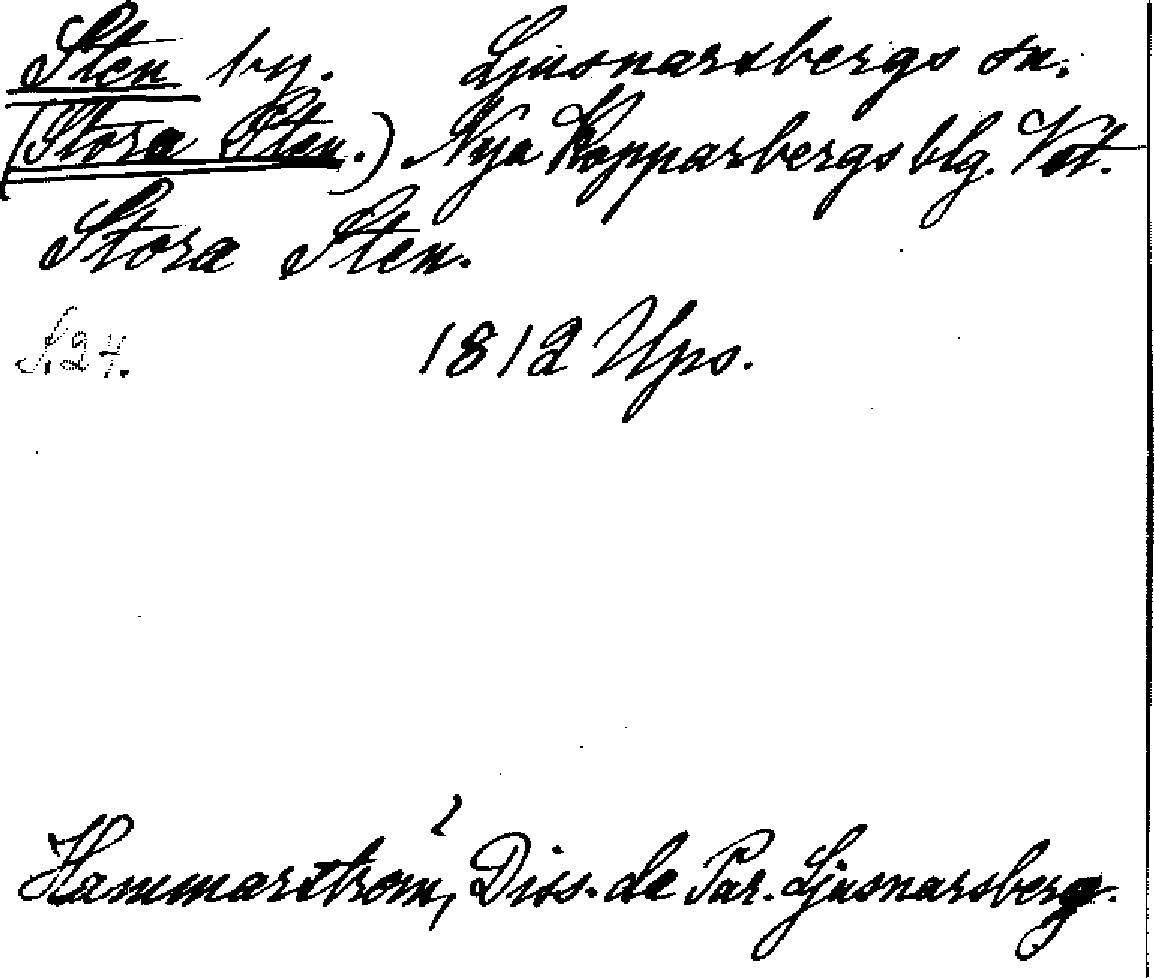 Sten by. Ljusnarsbergs sn.
(Stora Sten.) Nya Kopparbergs blg. Vst.
Stora Sten.
S. 24. 1812 Ups.
Hammarström, Diss. de Par. Ljusnarsberg.